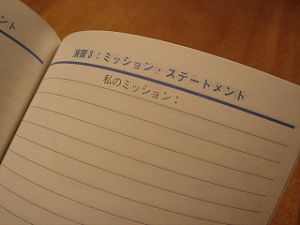 ント
演習3：ミッション・ステートメント
私のミッション：